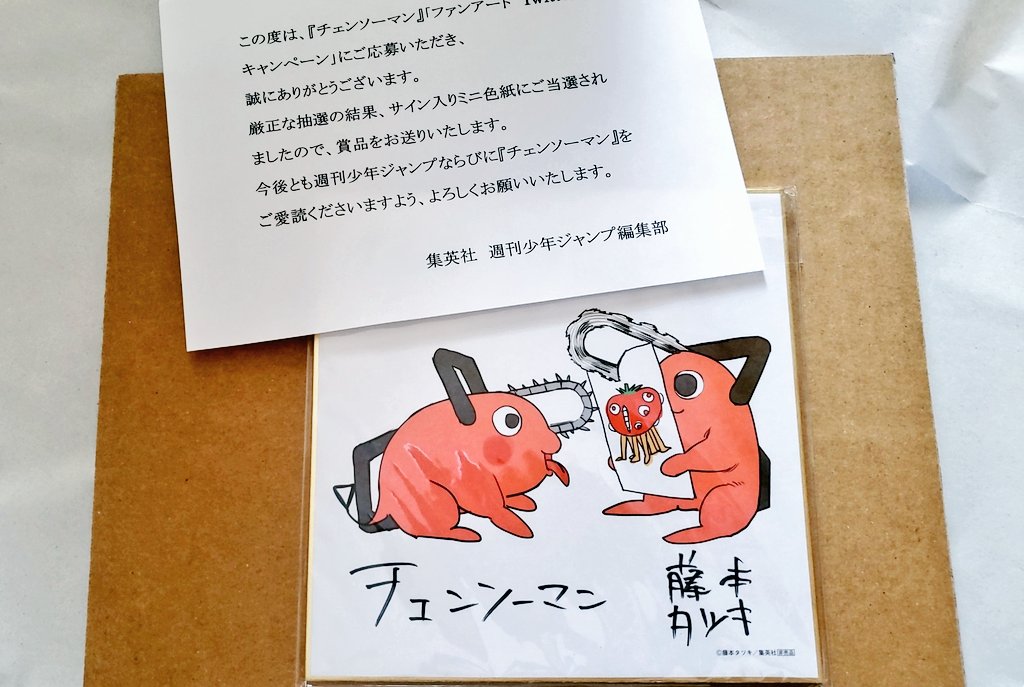 この度は、『チェンソーマン』「ファンアート Twitter
キャンペーン」にご応募いただき、
誠にありがとうございます。
厳正な抽選の結果、サイン入りミニ色紙にご当選され
ましたので、賞品をお送りいたします。
今後とも週刊少年ジャンプならびに『チェンソーマン』を
ご愛読くださいますよう、よろしくお願いいたします。
集英社 週刊少年ジャンプ編集部
チェンソーマン
藤本
タツキ
©藤本タツキ/集英社 非売品